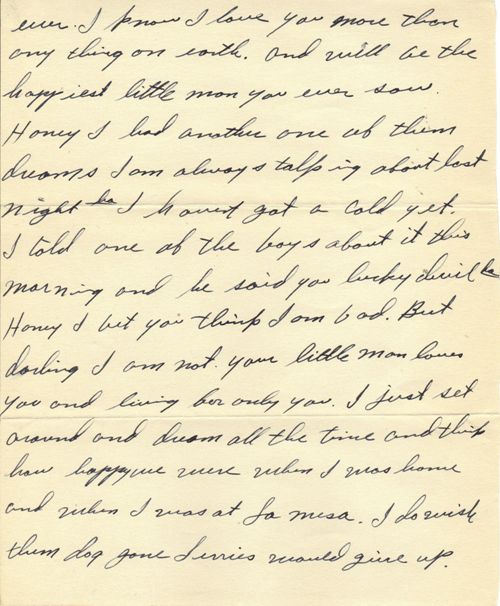 ever. I know I love you more than
any thing on earth. and will be the
happiest little man you ever saw.
Honey I had another one of them
dreams I am always talking about last
night ha I havent got a cold yet.
I told one of the boys about it this
morning and he said you lucky devil ha
Honey I bet you think I am bad. But
darling I am not. your little man loves
you and living for only you. I just set
around and dream all the time and think
how happy we were when I was home
and when I was at La mesa. I do wish
them dog gone Jerries would give up.